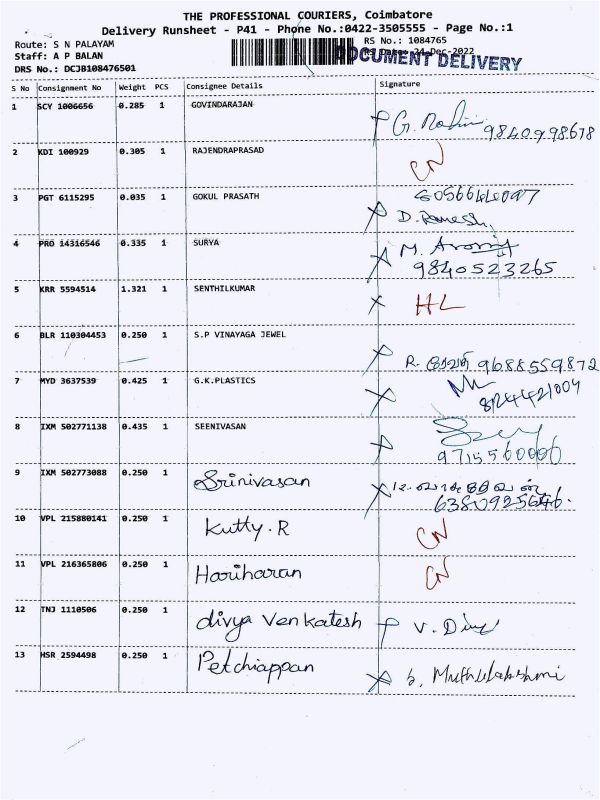 THE PROFESSIONAL COURIERS, Coimbatore
Delivery Runsheet - P41 - Phone No.:0422-3505555 - Page No.:1
Route: S N PALAYAM
RS No.: 1084765
Staff: A P BALAN
RS Date: 24-Dec-2022
DOCUMENT DELIVERY
DRS No.: DCJB108476501
S No Consignment No Weight PCS Consignee Details Signature
1 SCY 1006656 0.285 1 GOVINDARAJAN
9840998678
2 KDI 100929 0.305 1 RAJENDRAPRASAD CN
3 PGT 6115295 0.035 1 GOKUL PRASATH
D. Ramesh
4 PRO 14316546 0.335 1 SURYA M.
9840523265
5 KRR 5594514 1.321 1 SENTHILKUMAR HL
6 BLR 110304453 0.250 1 S.P VINAYAGA JEWEL
R. 9688559872
7 MYD 3637539 0.425 1 G.K.PLASTICS
8 IXM 502771138 0.435 1 SEENIVASAN
9715560006
9 IXM 502773088 0.250 1 Srinivasan
10 VPL 215880141 0.250 1 Kutty. R CN
11 VPL 216365806 0.250 1 Hariharan CN
12 TNJ 1110506 0.250 1 divya Venkatesh V.
13 HSR 2594498 0.250 1 Petchiappan Muthulakshmi